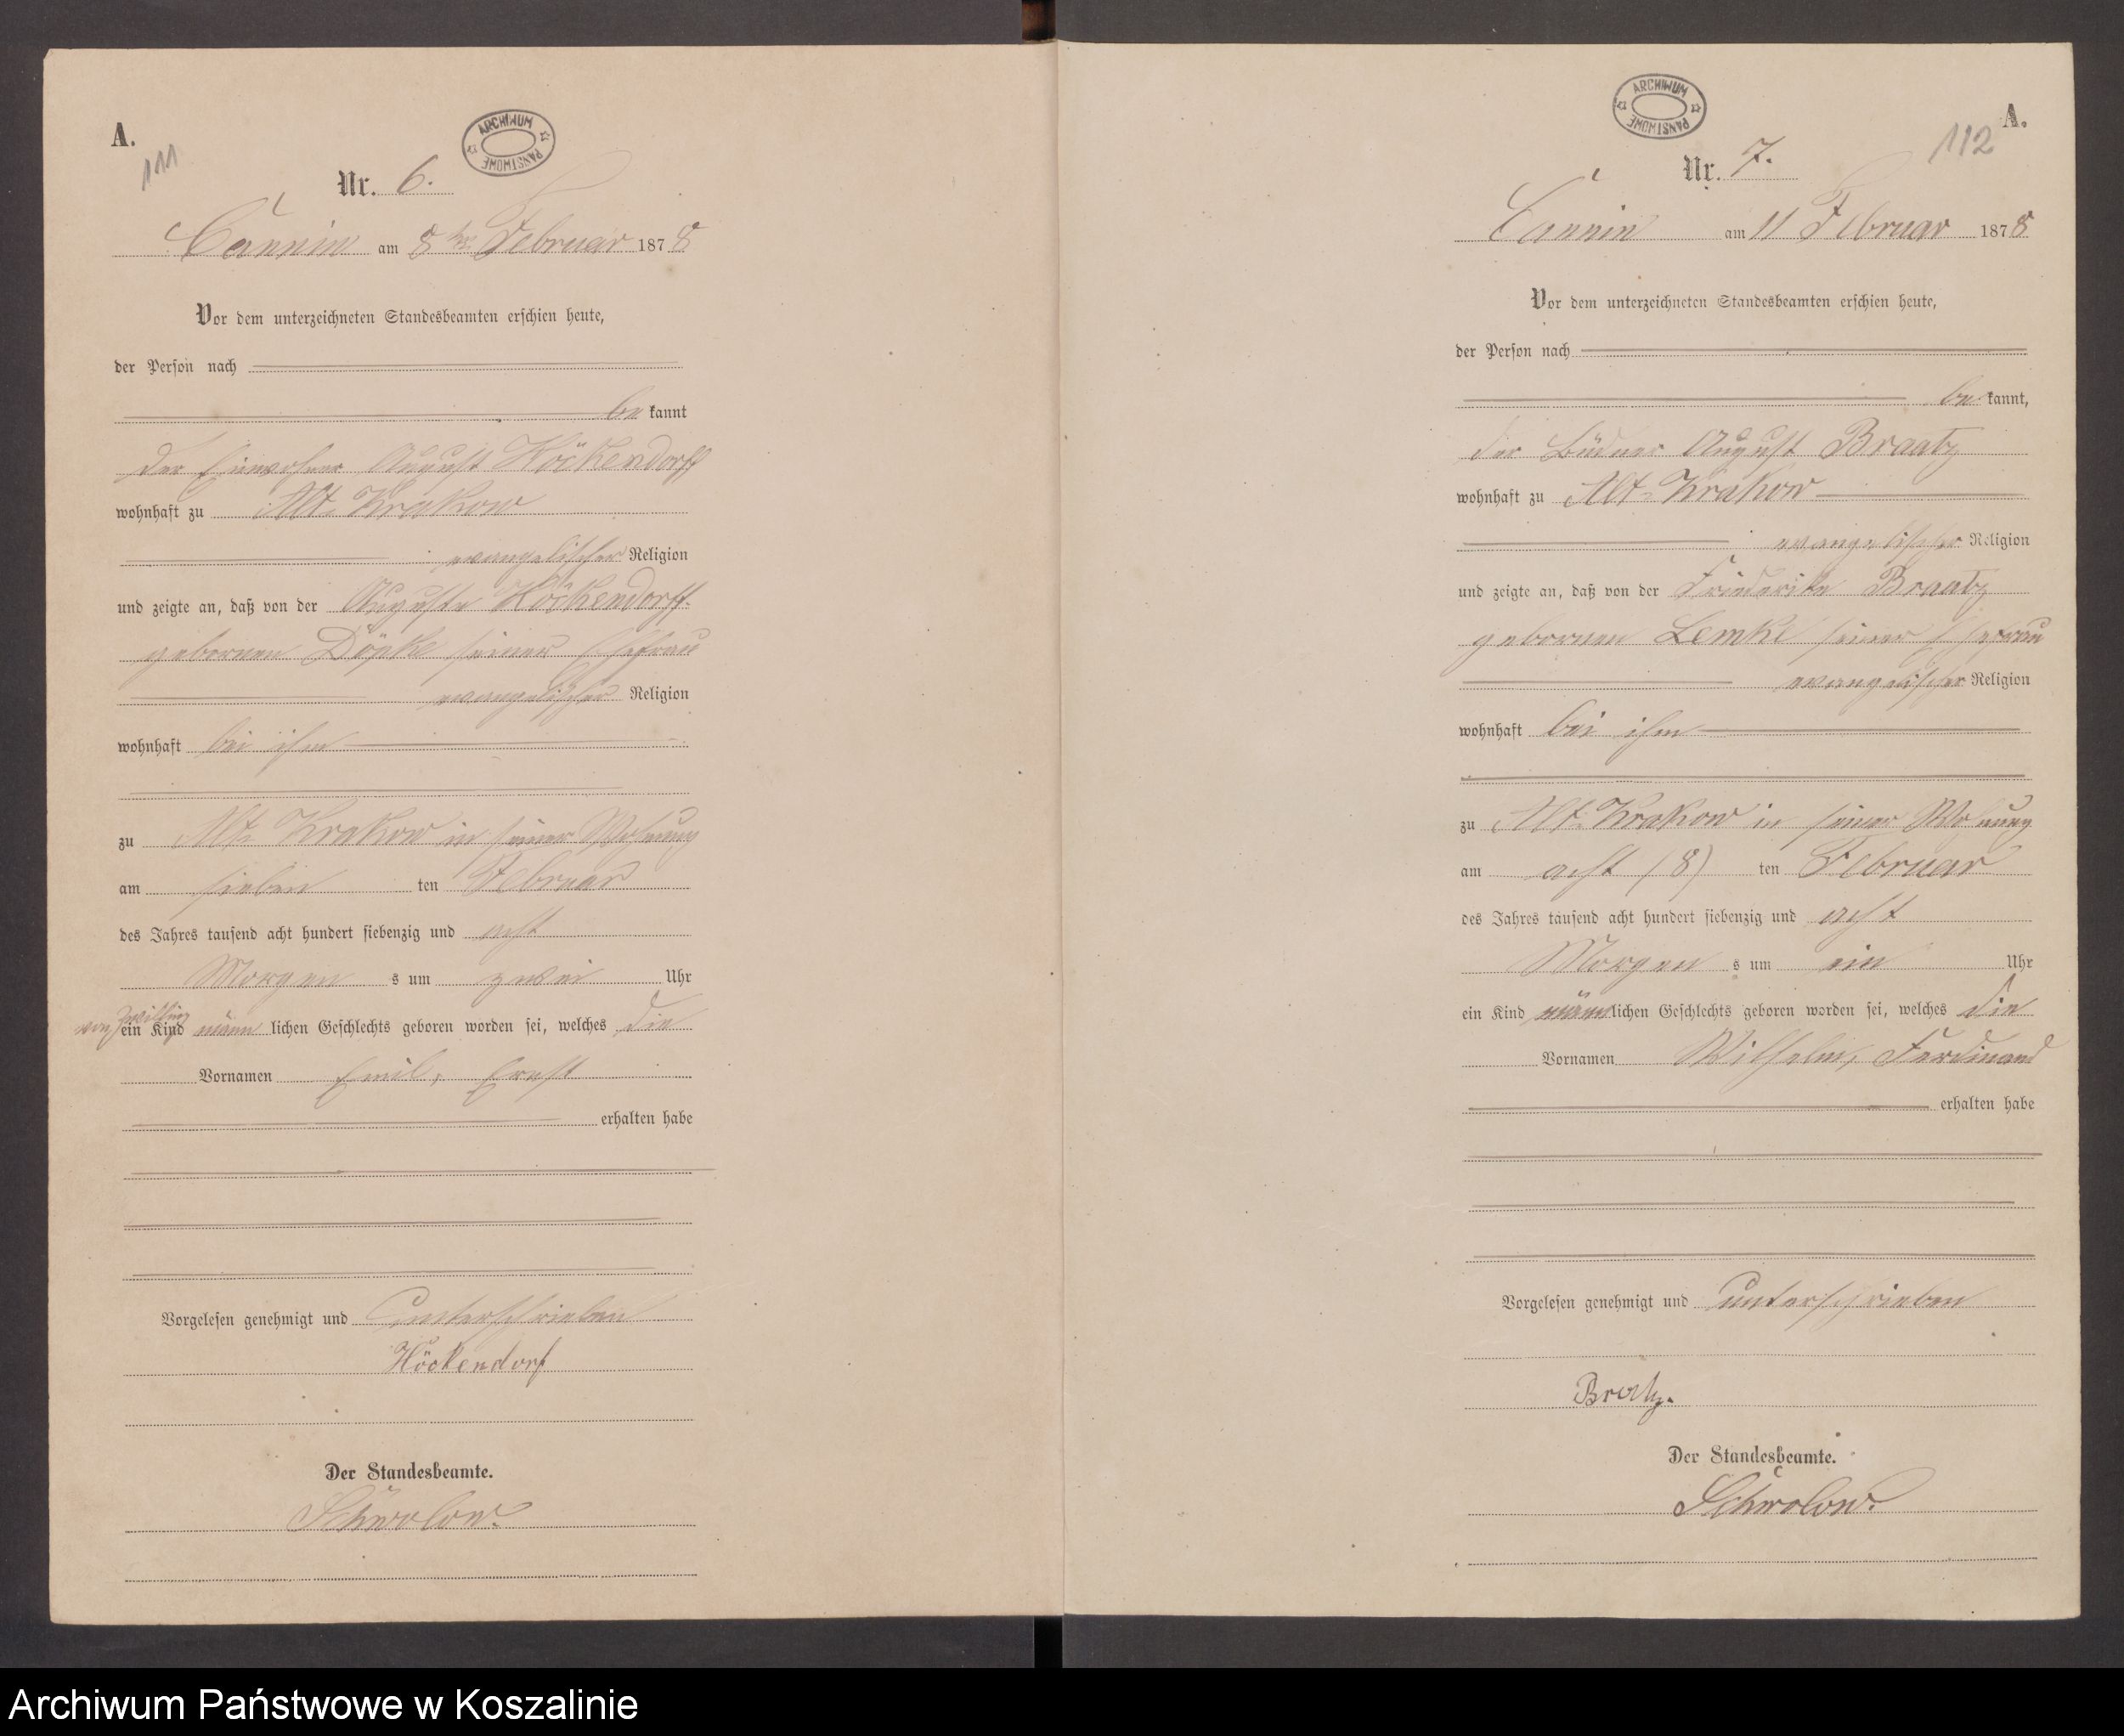 A.
111
ARCHIWUM PAŃSTWOWE
Nr. 6.
Cannin am 8ten Februar 1878
Vor dem unterzeichneten Standesbeamten erschien heute,
der Person nach
be kannt
der Einwohner August Höckendorff
wohnhaft zu Alt-Krakow
evangelischer Religion
und zeigte an, daß von der Auguste Höckendorff
gebornen Döpke seiner Ehefrau
evangelischer Religion
wohnhaft bei ihm
zu Alt-Krakow in seiner Wohnung
am sieben ten Februar
des Jahres tausend acht hundert siebenzig und acht
Morgen s um zwei Uhr
Zwilling
ein Kind männ lichen Geschlechts geboren worden sei, welches die
Vornamen Emil, Ernst
erhalten habe
Vorgelesen genehmigt und unterschrieben
Höckendorf
Der Standesbeamte.
Schwolow
A.
112
ARCHIWUM PAŃSTWOWE
Nr. 7.
Cannin am 11 Februar 1878
Vor dem unterzeichneten Standesbeamten erschien heute,
der Person nach
be kannt,
der Büdner August Braatz
wohnhaft zu Alt-Krakow
evangelischer Religion
und zeigte an, daß von der Friederike Braatz
gebornen Lemke seiner Ehefrau
evangelischer Religion
wohnhaft bei ihm
zu Alt-Krakow in seiner Wohnung
am acht (8) ten Februar
des Jahres tausend acht hundert siebenzig und acht
Morgen s um ein Uhr
ein Kind männlichen Geschlechts geboren worden sei, welches die
Vornamen Wilhelm, Ferdinand
erhalten habe
Vorgelesen genehmigt und unterschrieben
Bratz.
Der Standesbeamte.
Schwolow.
Archiwum Państwowe w Koszalinie